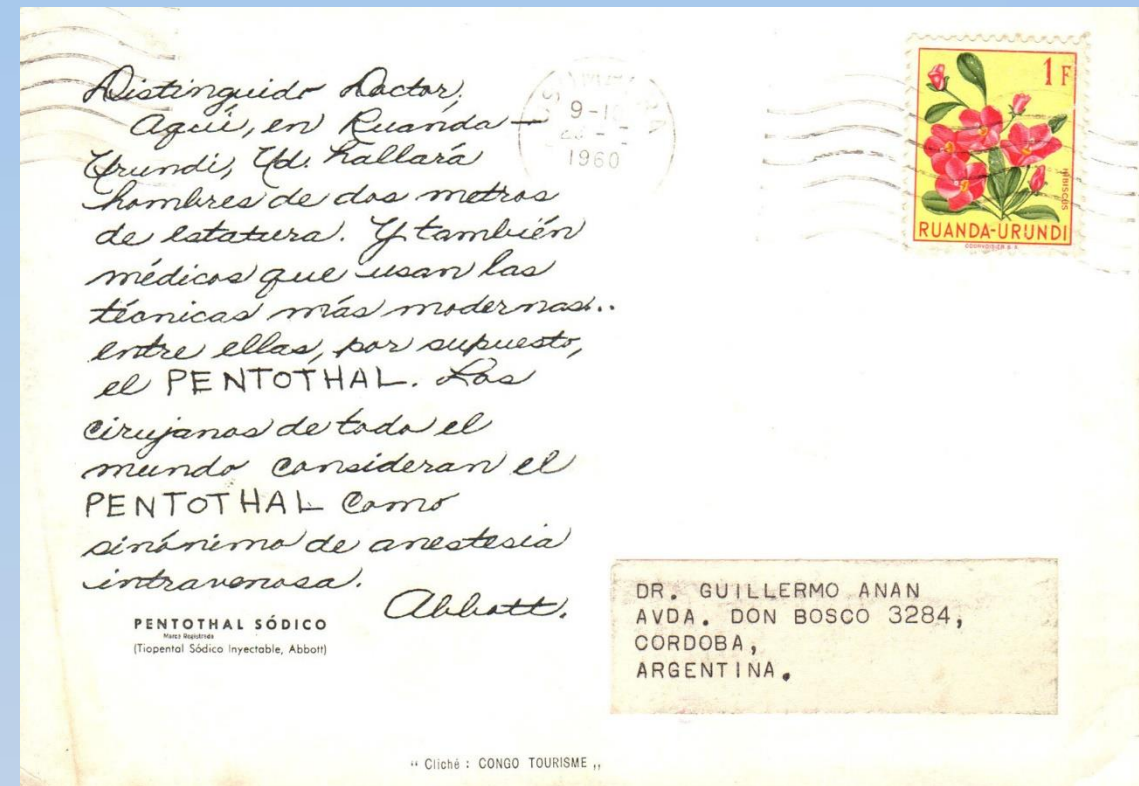 Distinguido Doctor,
Aquí, en Ruanda-
Urundi, Ud. hallará
hombres de dos metros
de estatura. Y también
médicos que usan las
técnicas más modernas..
entre ellas, por supuesto,
el PENTOTHAL. Los
cirujanos de todo el
mundo consideran el
PENTOTHAL como
sinónimo de anestesia
intravenosa.
Abbott.
PENTOTHAL SÓDICO
Marca Registrada
(Tiopental Sódico Inyectable, Abbott)
9-10
1960
1F
HIBISCUS
RUANDA-URUNDI
COURVOISIER S.A.
DR. GUILLERMO ANAN
AVDA. DON BOSCO 3284,
CORDOBA,
ARGENTINA.
" Cliché : CONGO TOURISME "